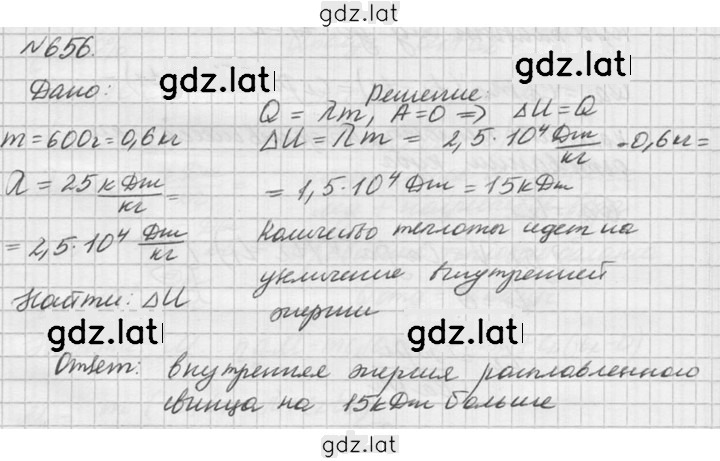 gdz.lat
№656.
gdz.lat gdz.lat
Дано: Решение:
Q = λm, A=0 => ΔU=Q
m=600г=0,6кг ΔU = λm = 2,5·10⁴ Дж/кг · 0,6кг =
λ = 25 кДж/кг = = 1,5·10⁴ Дж = 15кДж
= 2,5·10⁴ Дж/кг Количество теплоты идет на
увличение внутренней
Найти: ΔU энергии
gdz.lat gdz.lat
Ответ: внутренняя энергия расплавленного
свинца на 15кДж больше
gdz.lat